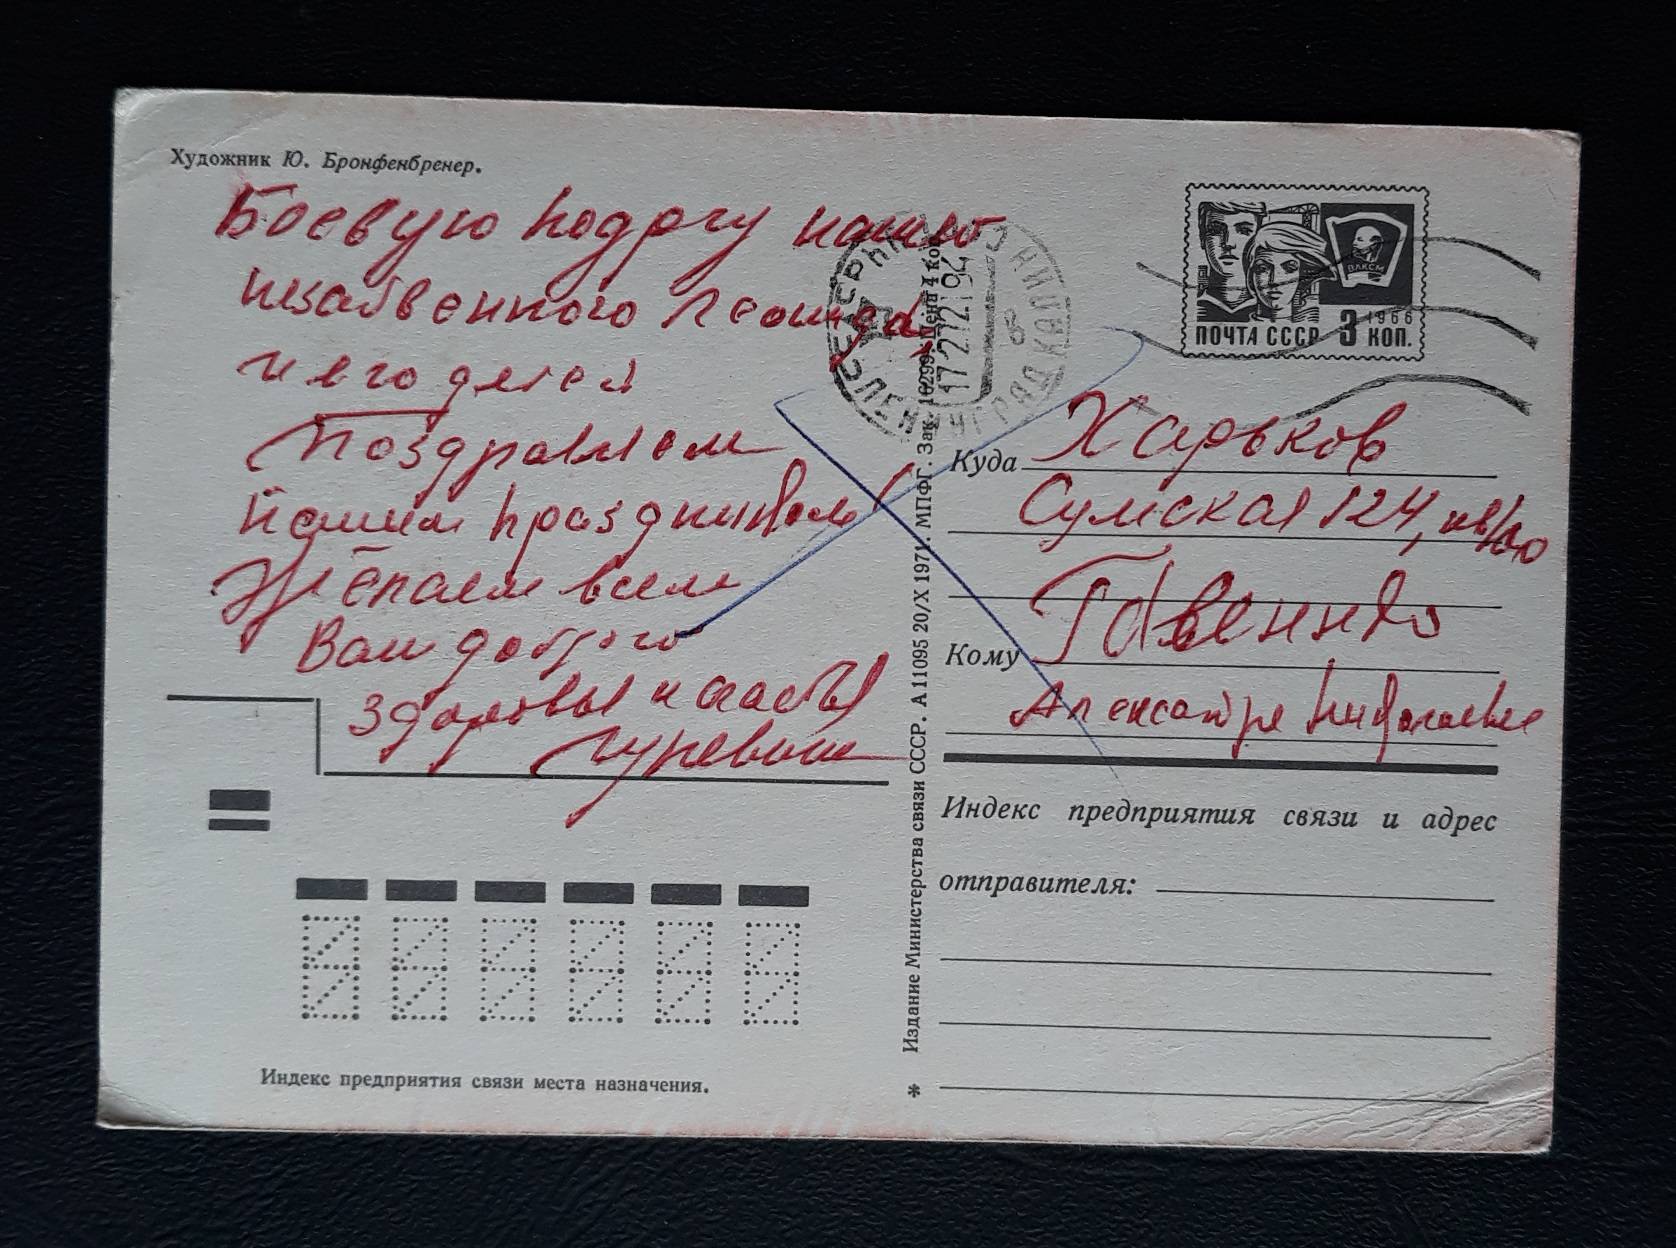 Художник Ю. Бронфенбренер.
Боевую подругу нашего
незабвенного Леонида,
и его детей
Поздравляем
Нашим праздником!
Желаем всем
Вам доброго
здоровья и счастья
Гуревичи
Индекс предприятия связи места назначения.
Издание Министерства связи СССР. А 11095 20/X 1971. МПФГ. Зак. 16299. Цена 4 коп.
ЛЕНИНГРАД
17 2 72 19
ВЛКСМ
1966
ПОЧТА СССР 3 КОП.
Куда Харьков
Сумская 124, кв
Кому
Александре Николаевне
Индекс предприятия связи и адрес
отправителя: